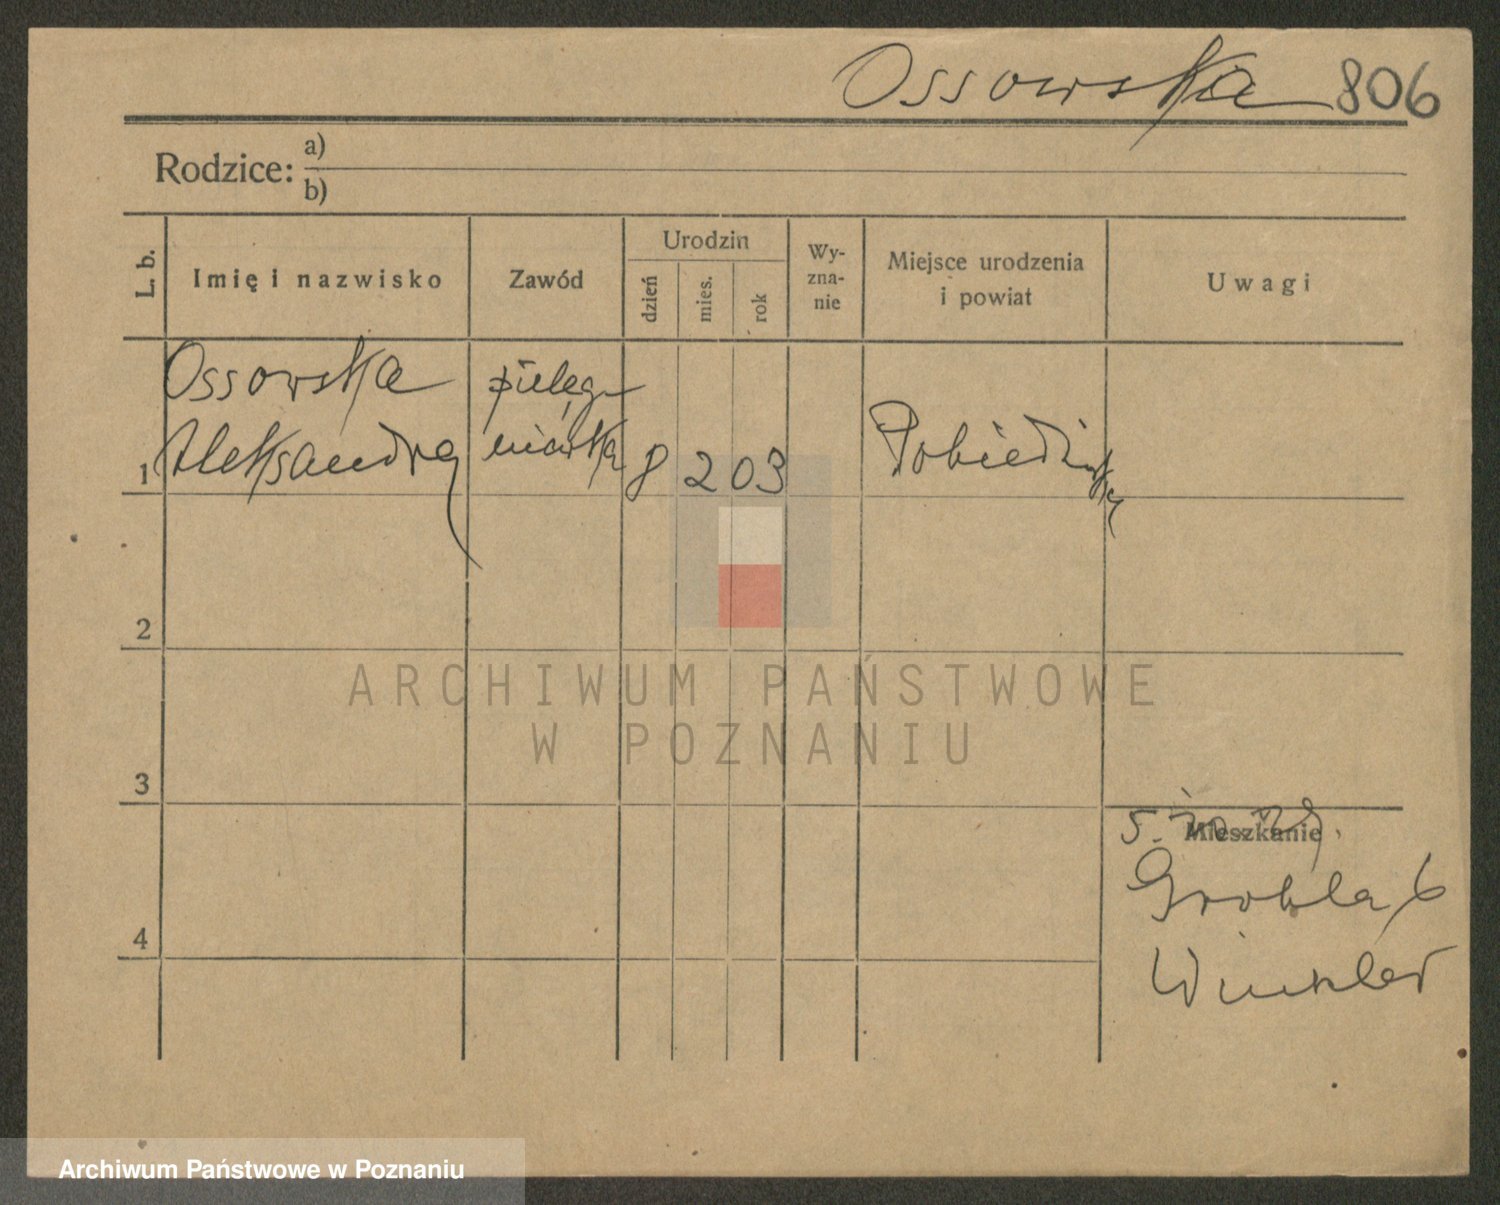 Ossowska 806
Rodzice: a)
b)
L. b.
Imię i nazwisko
Zawód
Urodzin
dzień
mies.
rok
Wy-
zna-
nie
Miejsce urodzenia
i powiat
Uwagi
Ossowska
Aleksandra
pielęg-
niarka
1
8 2 03
Pobiedziska
2
3
4
Mieszkanie
Grobla 6
Winkler
ARCHIWUM PAŃSTWOWE
W POZNANIU
Archiwum Państwowe w Poznaniu